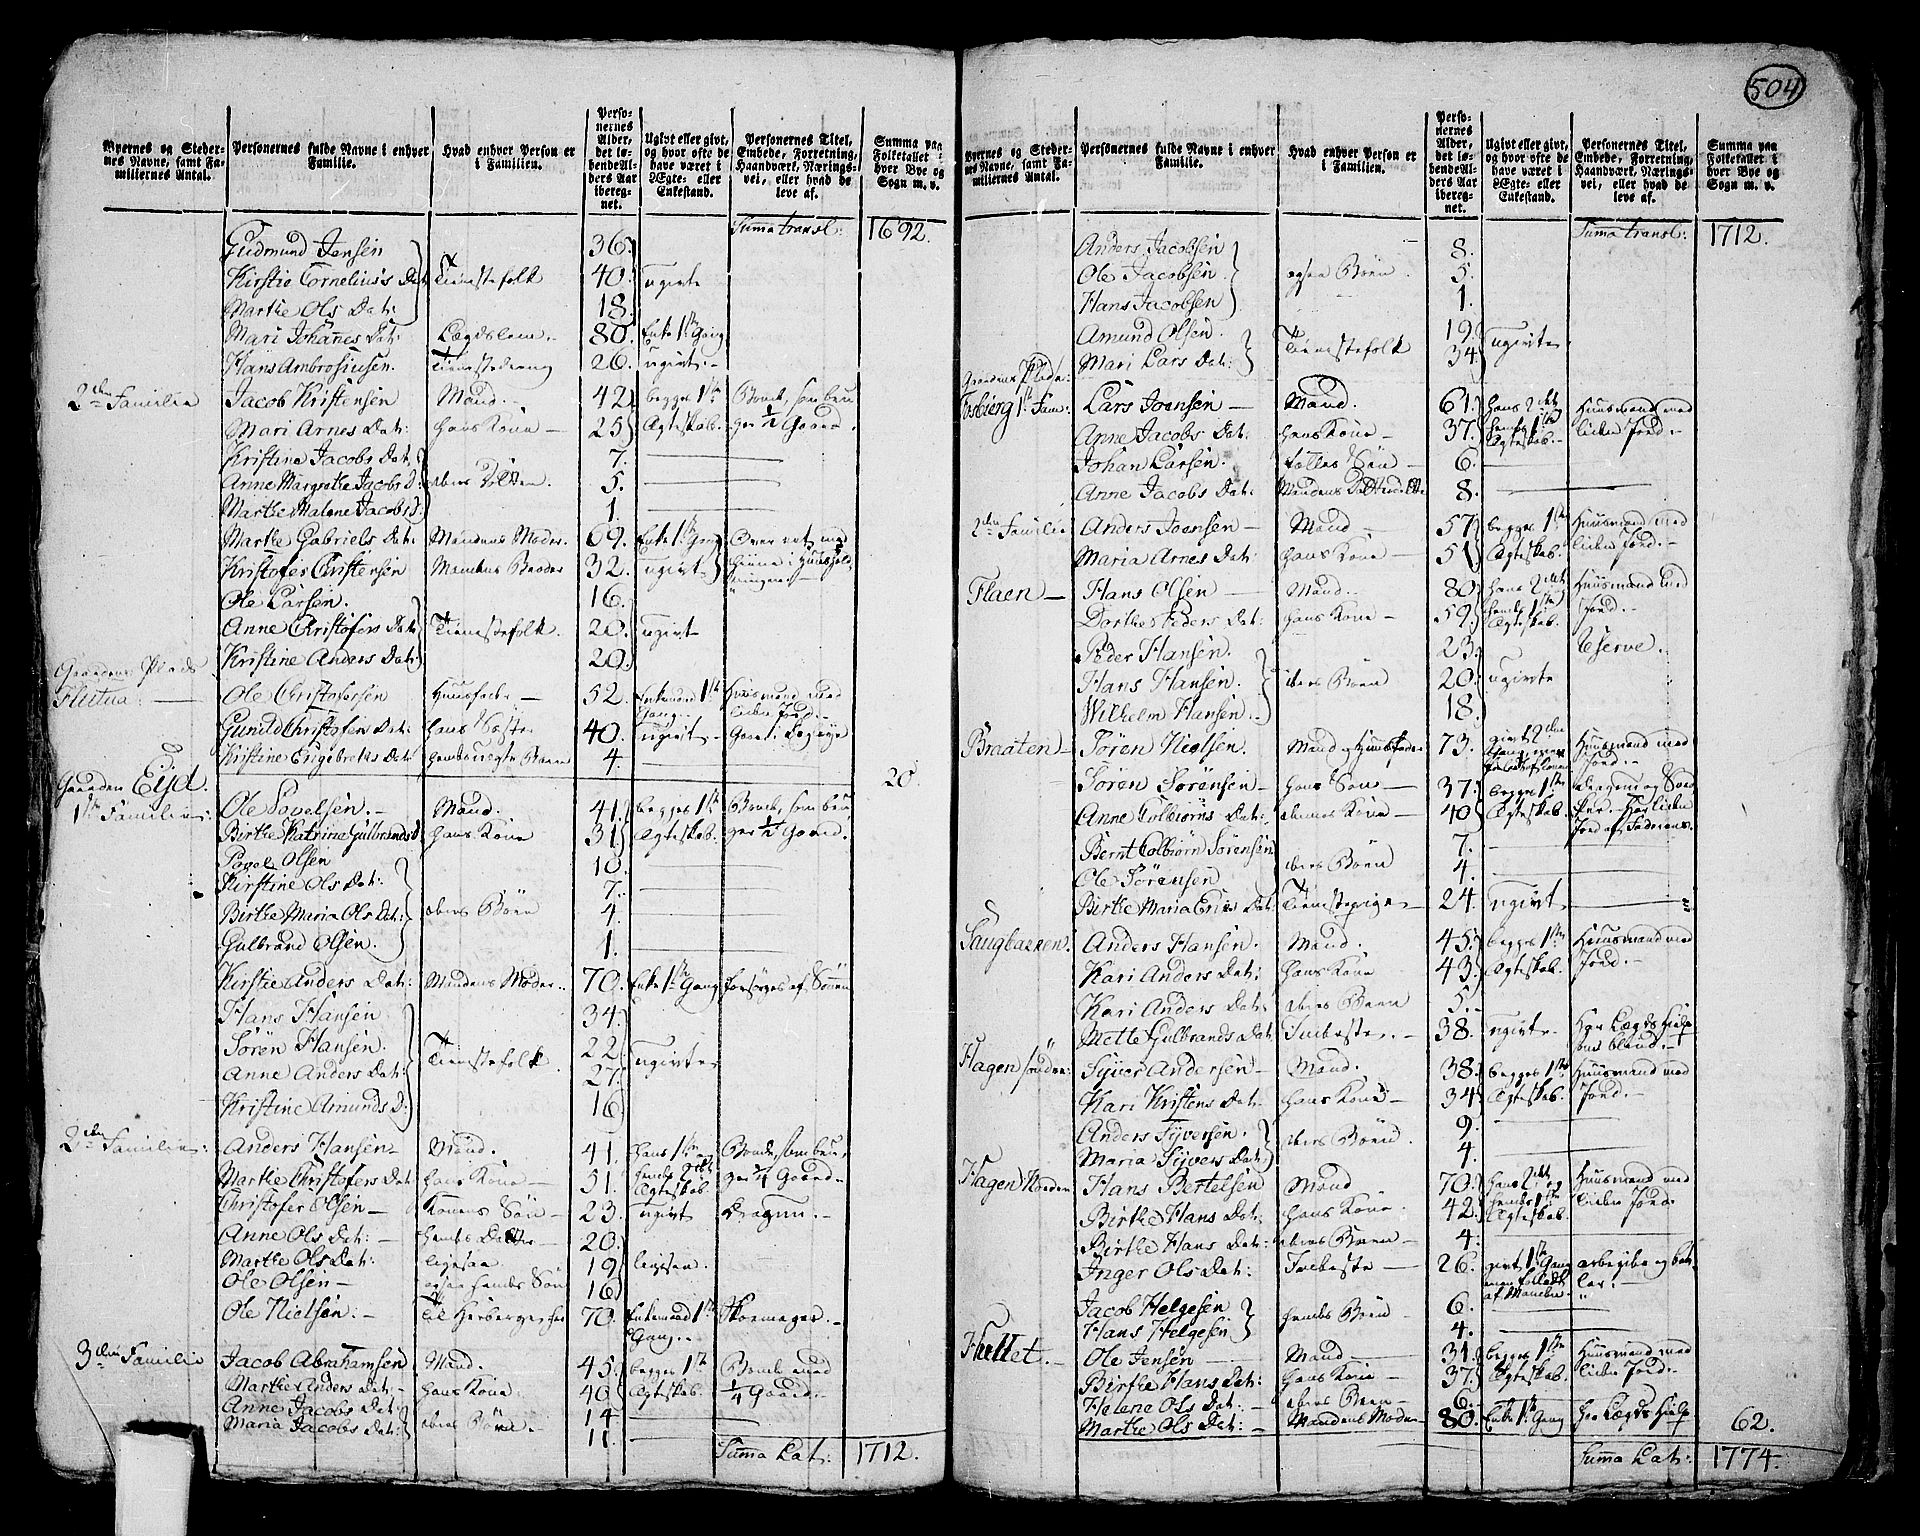 504
Byernes og Stedernes Navne, samt Familiernes Antal.
Personernes fulde Navne i enhver Familie.
Hvad enhver Person er i Familien.
Personernes Alder, det løbendeAlders Aar iberegnet.
Ugivt eller givt, og hvor ofte de have været i Ægte- eller Enkestand.
Personernes Titel, Embede, Forretning, Haandværk, Næringsvei, eller hvad de leve af.
Summa paa Folketallet i hver Bye og Sogn m. v.
Suma transl: 1692.
Gudmund Jensen 36.
Kirstie Cornelius's Dat: Tienestefolk 40. ugivte
Marthe Ols Dat: 18.
Mari Johannes Dat: Lægdslem 80. Enke 1ste Gang
Hans Ambrosiusen. Tienestedreng 26. ugivt
2den Familie Jacob Kristensen Mand. 42 begges 1ste Bonde, som bru
Mari Arnes Dat: Hans Kone 25 Ægteskab. ger 1/2 Gaard.
Kristine Jacobs Dat: 7.
Anne Margrethe Jacobs D: deres Døttre. 5.
Marthe Malene Jacobs D: 1.
Marthe Gabriels Dat: Mandens Moder. 69. Enke 1ste Gang
Kristofer Christensen Mandens Broder 32. ugivt
Ole Larsen. 16.
Anne Christofers Dat: Tienestefolk. 20. ugivt
Kristine Anders Dat: 20.
Gaardens Plads
Flestua: Ole Christofersen Huusfader 52. Enkemand 1ste Gang. Huusmand med liden Jord.
Gunild Christofers Dat: Hans Søster 40. ugivt
Kristine Engebreths Dat: 4.
Gaarden Eijd. 20.
1ste Familie: Ole Povelsen. Mand. 41. begges 1ste Bonde, som bru
Birthe Katrina Gulbrands D Hans Kone 31 Ægteskab. ger 1/2 Gaard.
Povel Olsen 10.
Kirstine Ols Dat: 7.
Birthe Maria Ols Dat: deres Børn 4.
Gulbrand Olsen. 1.
Kirstie Anders Dat: Mandens Moder. 70. Enke 1ste Gang forsørges af Sønnen
Hans Hansen 34.
Søren Hansen. 22.
Anne Anders Dat: Tienestefolk. 27. ugivte
Kristine Amunds D: 16.
2den Familie: Anders Hansen Mand. 41. hans 1ste Bonde, som bru
Marthe Christofers Dat: hans Kone 51. hendes 2det Ægteskab. ger 1/4 Gaard
Christofer Olsen Konens Søn 23. ugivt Dragun.
Anne Ols Dat: hendes Datter 20.
Marthe Ols Dat: ligesaa 19 ligesaa.
Ole Olsen ogsaa hendes Søn 16
Ole Nielsen: Til Herberge her 70. Enkemand 1ste Gang. Skoemager.
3die Familie Jacob Abrahamsen Mand. 45 begges 1ste Bonde med
Marthe Anders Dat: Hans Kone 40 Ægteskab. 1/4 Gaard.
Anne Jacobs Dat: 14
Maria Jacobs Dat: deres Børn. 11.
Suma Lat: 1712.
Byernes og Stedernes Navne, samt Familiernes Antal.
Personernes fulde Navne i enhver Familie.
Hvad enhver Person er i Familien.
Personernes Alder, det løbendeAlders Aar iberegnet.
Ugivt eller givt, og hvor ofte de have været i Ægte- eller Enkestand.
Personernes Titel, Embede, Forretning, Haandværk, Næringsvei, eller hvad de leve af.
Summa paa Folketallet i hver Bye og Sogn m. v.
Suma transl: 1712.
Anders Jacobsen 8.
Ole Jacobsen ogsaa Børn. 5.
Hans Jacobsen 1.
Amund Olsen. 19.
Mari Lars Dat: Tienestefolk 34 ugivte
Gaardens Plads:
Fosbierg 1ste Fam: Lars Joensen Mand. 61. hans 2det Huusmand med
Anne Jacobs Dat: Hans Kone 37. hendes 1ste Ægteskab. liden Jord.
Johan Larsen. Fælles Søn 6.
Anne Jacobs Dat: 8.
2den Familie Anders Joensen Mand 57 begges 1ste Huusmand med
Maria Arnes Dat: Hans Kone 51 Ægteskab. liden Jord.
Flaen Hans Olsen Mand. 80 hans 2det Huusmand med
Dorthe Peders Dat: Hans Kone 59. hendes 1ste Ægteskab. Jord.
Peder Hansen. 23. Reserve.
Hans Hansen. deres Børn 20. ugivte
Wilhelm Hansen. 18.
Braaten Søren Nielsen. Mand og Huusfader 73. givt 2den Gang Huusmand med Jord.
Søren Sørensen hans Søn 37. begges 1ste
Anne Colbiørns Dat: dennes Kone 40 Ægteskab.
Bernt Colbiørn Sørensen 7.
Ole Sørensen deres Børn 4.
Birthe Maria Erics Dat: Tienestepige 24. ugivt
Saugbakken. Anders Hansen. Mand. 45. begges 1ste Huusmand med
Kari Anders Dat: Hans Kone 43. Ægteskab. Jord.
Kari Anders Dat: deres Barn 5.
Mette Gulbrands Dat: Inderste. 38. ugivt.
Hagen søndre: Syver Andersen Mand. 38. begges 1ste Huusmand med
Kari Kristens Dat: hans Kone 34 Ægteskab. Jord.
Anders Syversen. 9.
Maria Syvers Dat: deres Børn. 4.
Hagen Nordre Hans Bertelsen Mand 70. hans 2det og Huusmand med
Birthe Hans Dat: hans Kone. 42. hendes 1ste Ægteskab. liden Jord.
Birthe Hans Dat: deres Barn 4.
Inger Ols Dat: Inderste 26. givt 1ste Gang men forladt af Manden
Jacob Helgesen 6.
Hans Helgesen hendes Børn. 4.
Flattet. Ole Jensen Mand 31. begges 1ste Huusmand med
Birthe Hans Dat: hans Kone 37. Ægteskab. liden Jord.
Helene Ols Dat: deres Barn 6.
Marthe Ols Dat: Mandens Moder 80. Enke 1ste Gang har Lægds Hielp 62.
Suma Lat: 1774.